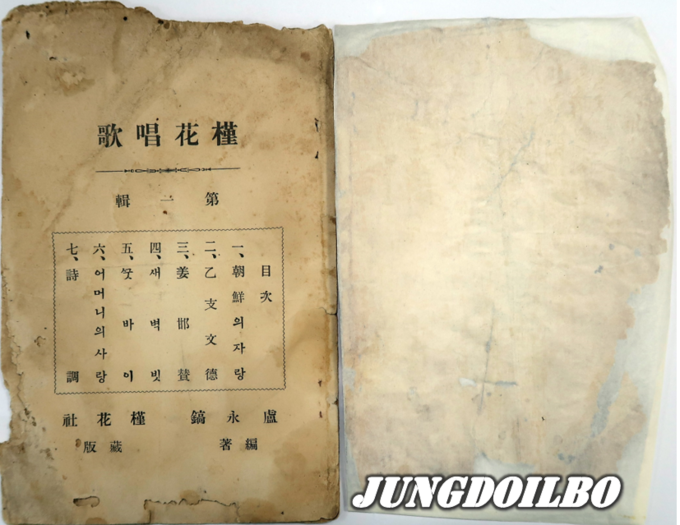 槿花唱歌
第一輯
目次
一、朝鮮의자랑
二、乙支文德
三、姜邯賛
四、새벽빗
五、ᄭᅮᆺ바이
六、어머니의사랑
七、詩調
盧永鎬 編著
槿花社 藏版
JUNGDOILBO